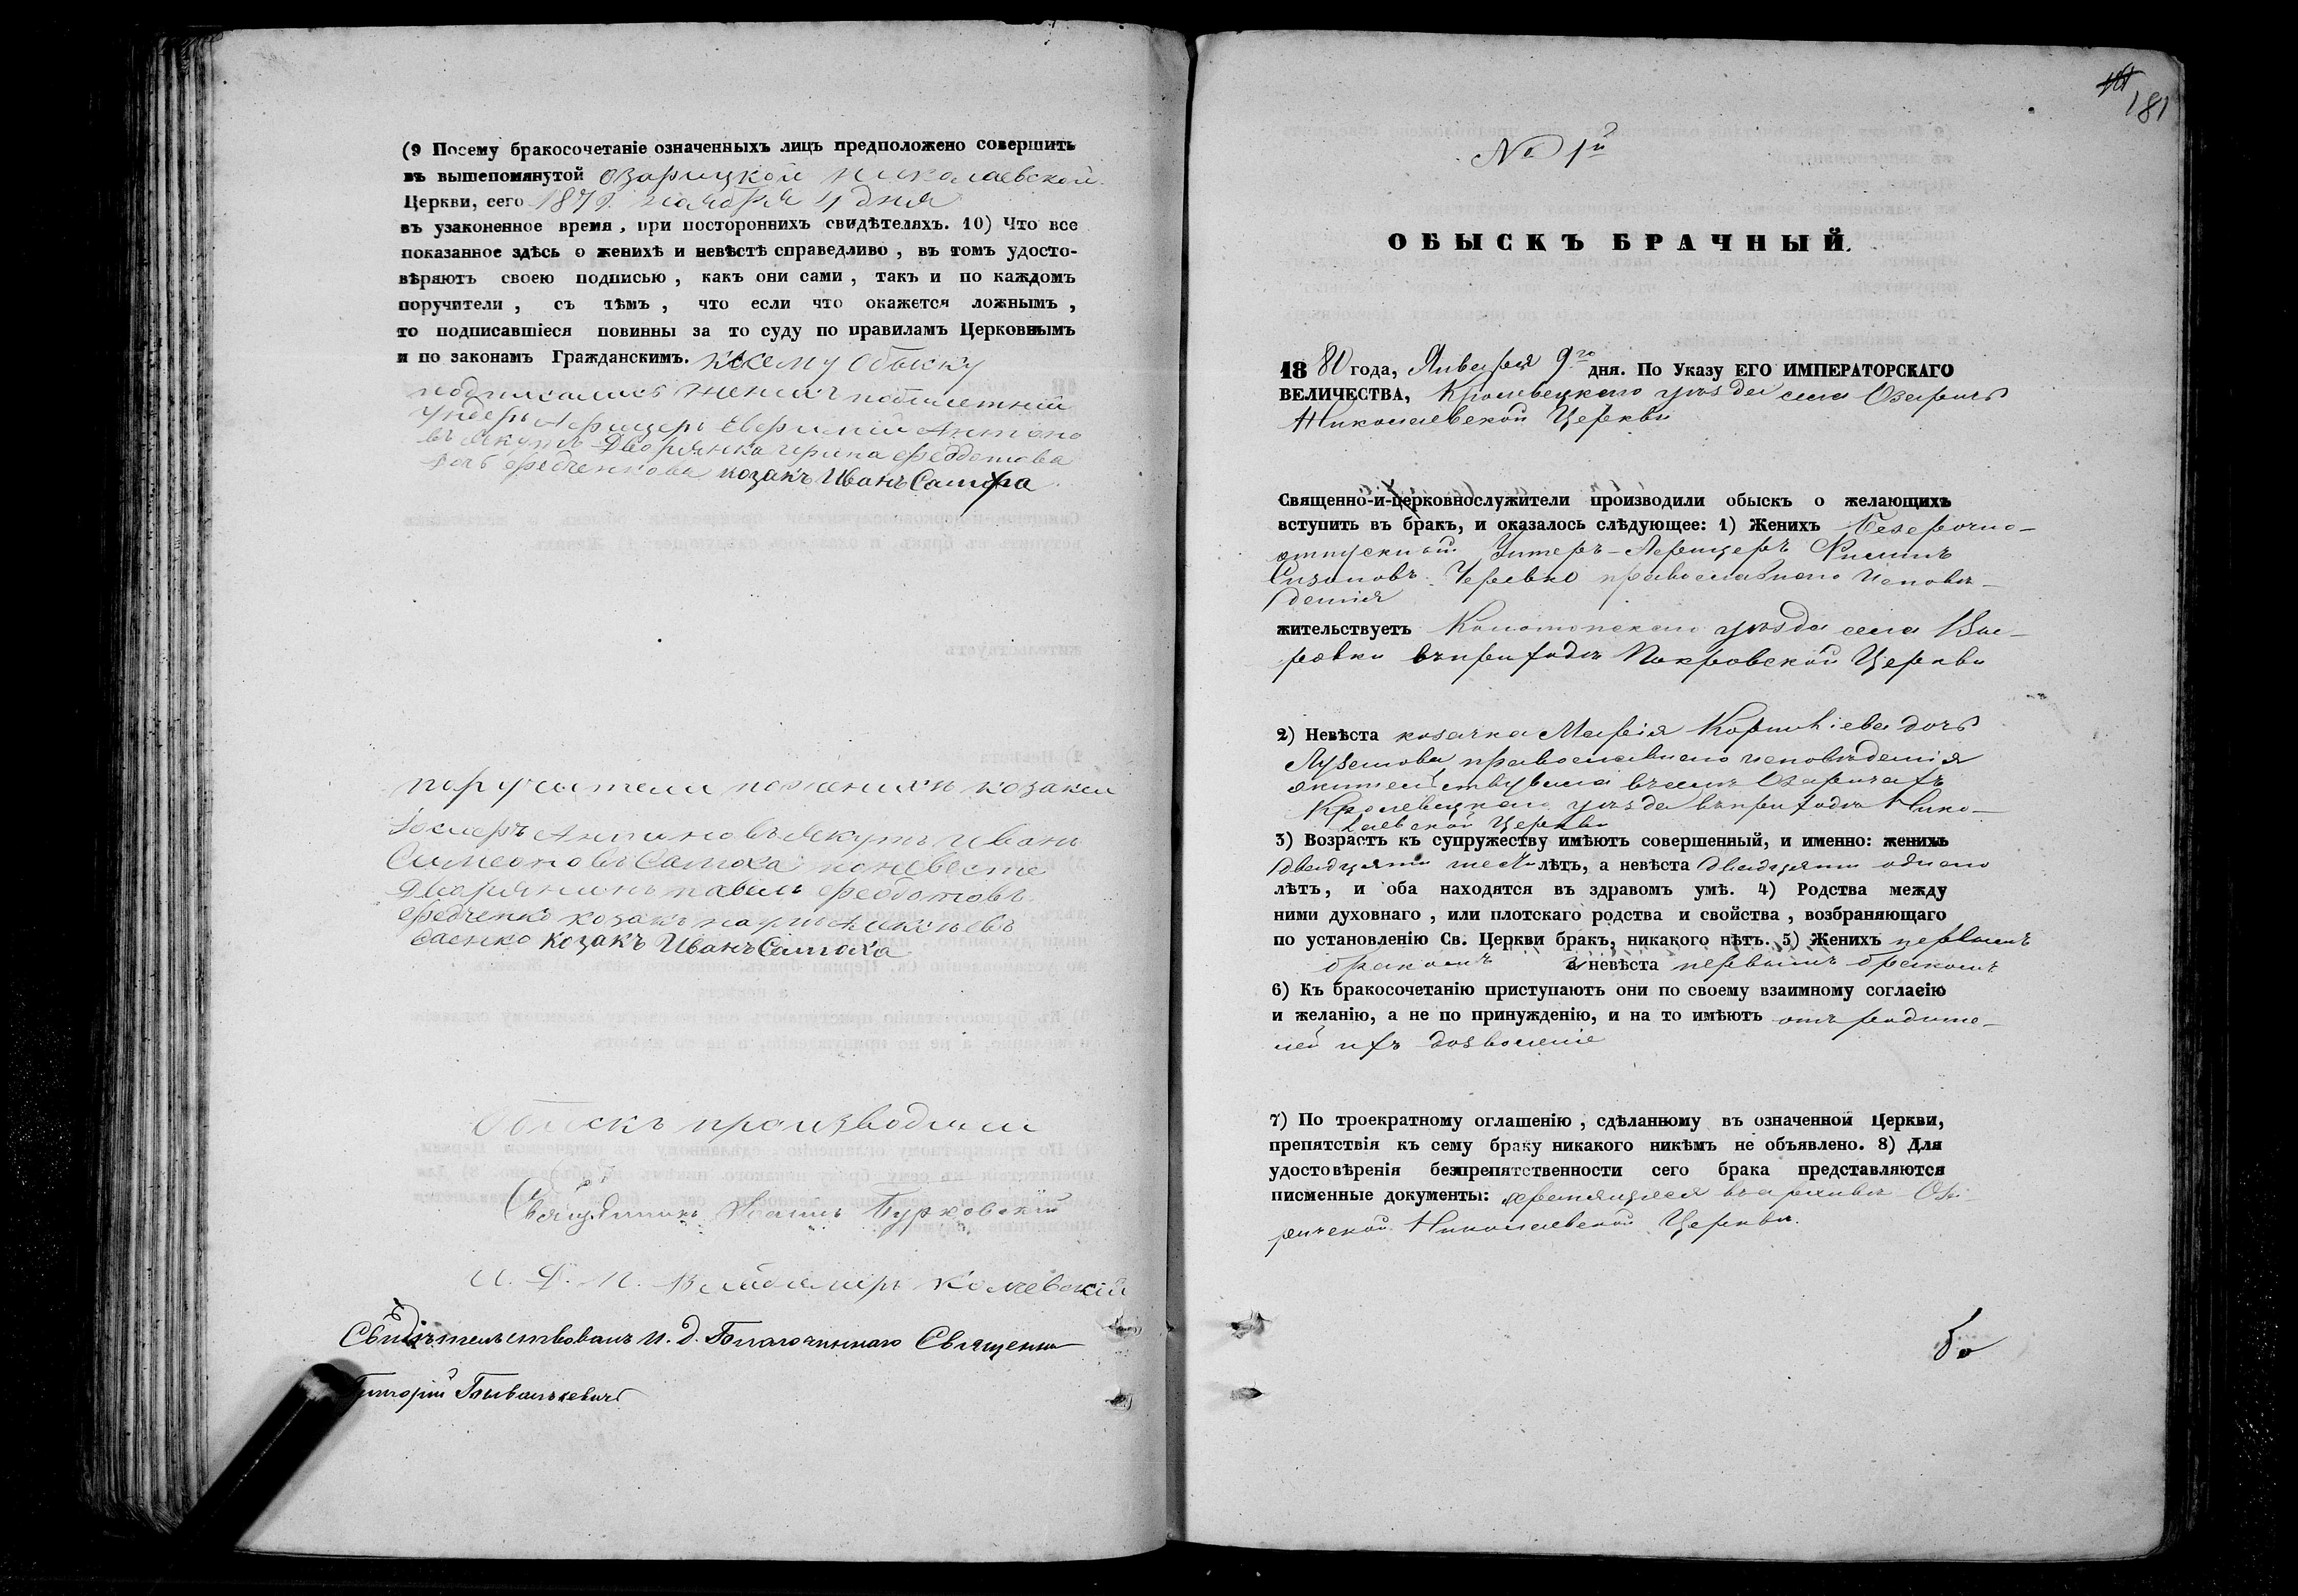 (9 Посему бракосочетаніе означенныхъ лицъ предположено совершить
въ вышепомянутой Озарицкой Николаевской
Церкви, сего 1879. ноября 4 дня
въ узаконенное время, при постороннихъ свидѣтеляхъ. 10) Что все
показанное здѣсь о женихѣ и невѣстѣ справедливо, въ томъ удосто-
вѣряютъ своею подписью, какъ они сами, такъ и по каждомъ
поручители, съ тѣмъ, что если что окажется ложнымъ,
то подписавшіеся повинны за то суду по правиламъ Церковнымъ
и по законамъ Гражданскимъ. К сему обыску
подписались женихъ
Ундеръ Афицеръ Евфимій Антоно
въ Якутъ Дворянка Ирина Феодотова
дочь Федченкова козакъ Иванъ Самоха
поручители по женихѣ козаки
Антиновъ Якутъ Иванъ
Симеоновъ Самоха по невесте
Дварянинъ Павелъ Феодотовъ
Федченко козакъ
Саенко козакъ Иванъ Самоха
Обыскъ производили
Священникъ Іоаннъ Бурковскій
И. Д. П. Владимиръ
Свидѣтельствовалъ и. д. Благочиннаго Священникъ
Григорій
181
№ 1й
ОБЫСКЪ БРАЧНЫЙ.
1880 года, Января 9го дня. По Указу ЕГО ИМПЕРАТОРСКАГО
ВЕЛИЧЕСТВА, Кролевецкаго уѣзда села Озаричъ
Николаевской Церкви
Священно-и-церковнослужители производили обыскъ о желающихъ
вступить въ бракъ, и оказалось слѣдующее: 1) Женихъ Безсрочно-
отпускный Унтеръ-Афицеръ Филипъ
Сизоновъ Черевко православнаго исповѣ-
данія
жительствуетъ Конотопскаго уѣзда села Вы-
ровки въ приходѣ Покровской Церкви
2) Невѣста козачка Марія Корнилiева дочь
православнаго исповѣданія
жительствующая въ селѣ Озаричахъ
Кролевецкаго уѣзда въ приходѣ Нико-
лаевской Церкви
3) Возрастъ къ супружеству имѣютъ совершенный, и именно: женихъ
двадцати шести лѣтъ, а невѣста двадцати одного
лѣтъ, и оба находятся въ здравомъ умѣ. 4) Родства между
ними духовнаго, или плотскаго родства и свойства, возбраняющаго
по установленію Св. Церкви бракъ, никакого нѣтъ. 5) Женихъ первымъ
бракомъ а невѣста первымъ бракомъ
6) Къ бракосочетанію приступаютъ они по своему взаимному согласію
и желанію, а не по принужденію, и на то имѣютъ отъ родите-
лей ихъ дозволеніе
7) По троекратному оглашенію, сдѣланному въ означенной Церкви,
препятствія къ сему браку никакого никѣмъ не объявлено. 8) Для
удостовѣренія безпрепятственности сего брака представляются
писменные документы: хранящіеся въ архивѣ Оза-
ричской Николаевской Церкви.